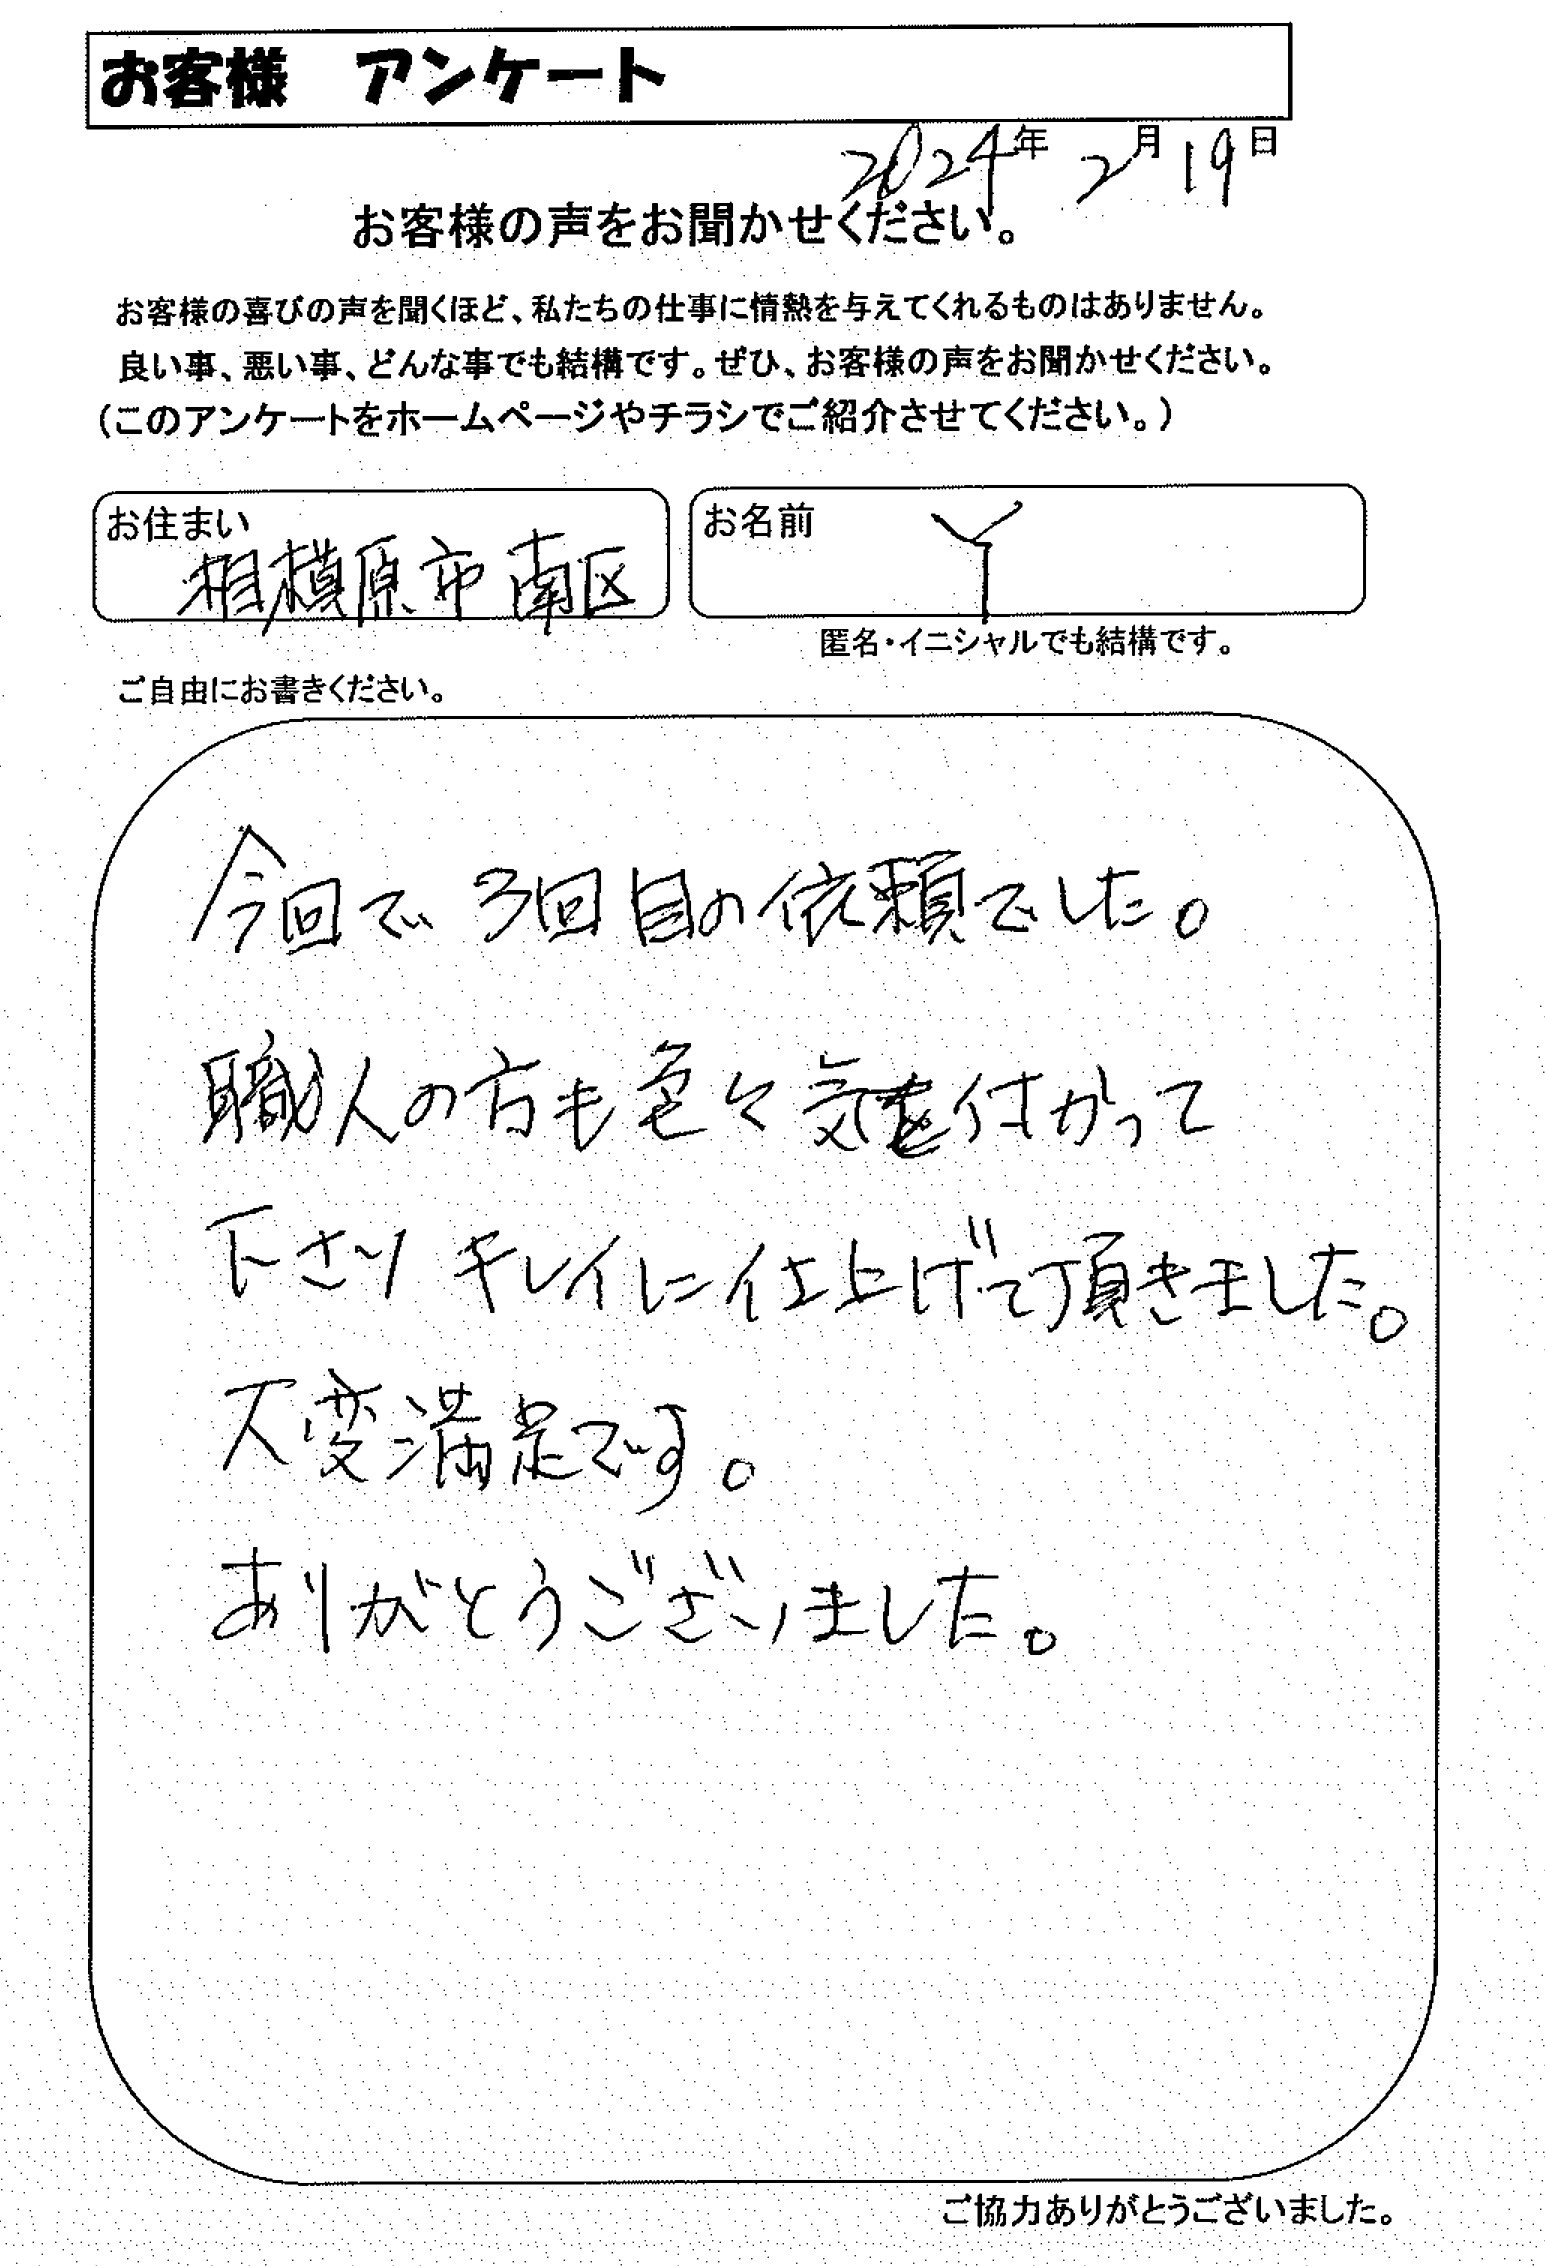 お客様　アンケート
2024年 2月19日
お客様の声をお聞かせください。
お客様の喜びの声を聞くほど、私たちの仕事に情熱を与えてくれるものはありません。
良い事、悪い事、どんな事でも結構です。ぜひ、お客様の声をお聞かせください。
（このアンケートをホームページやチラシでご紹介させてください。）
お住まい 相模原市南区
お名前 Y
匿名・イニシャルでも結構です。
ご自由にお書きください。
今回で 3回目の依頼でした。
職人の方も色々気を付かって
下さり キレイに仕上げて頂きました。
大変満足です。
ありがとうございました。
ご協力ありがとうございました。